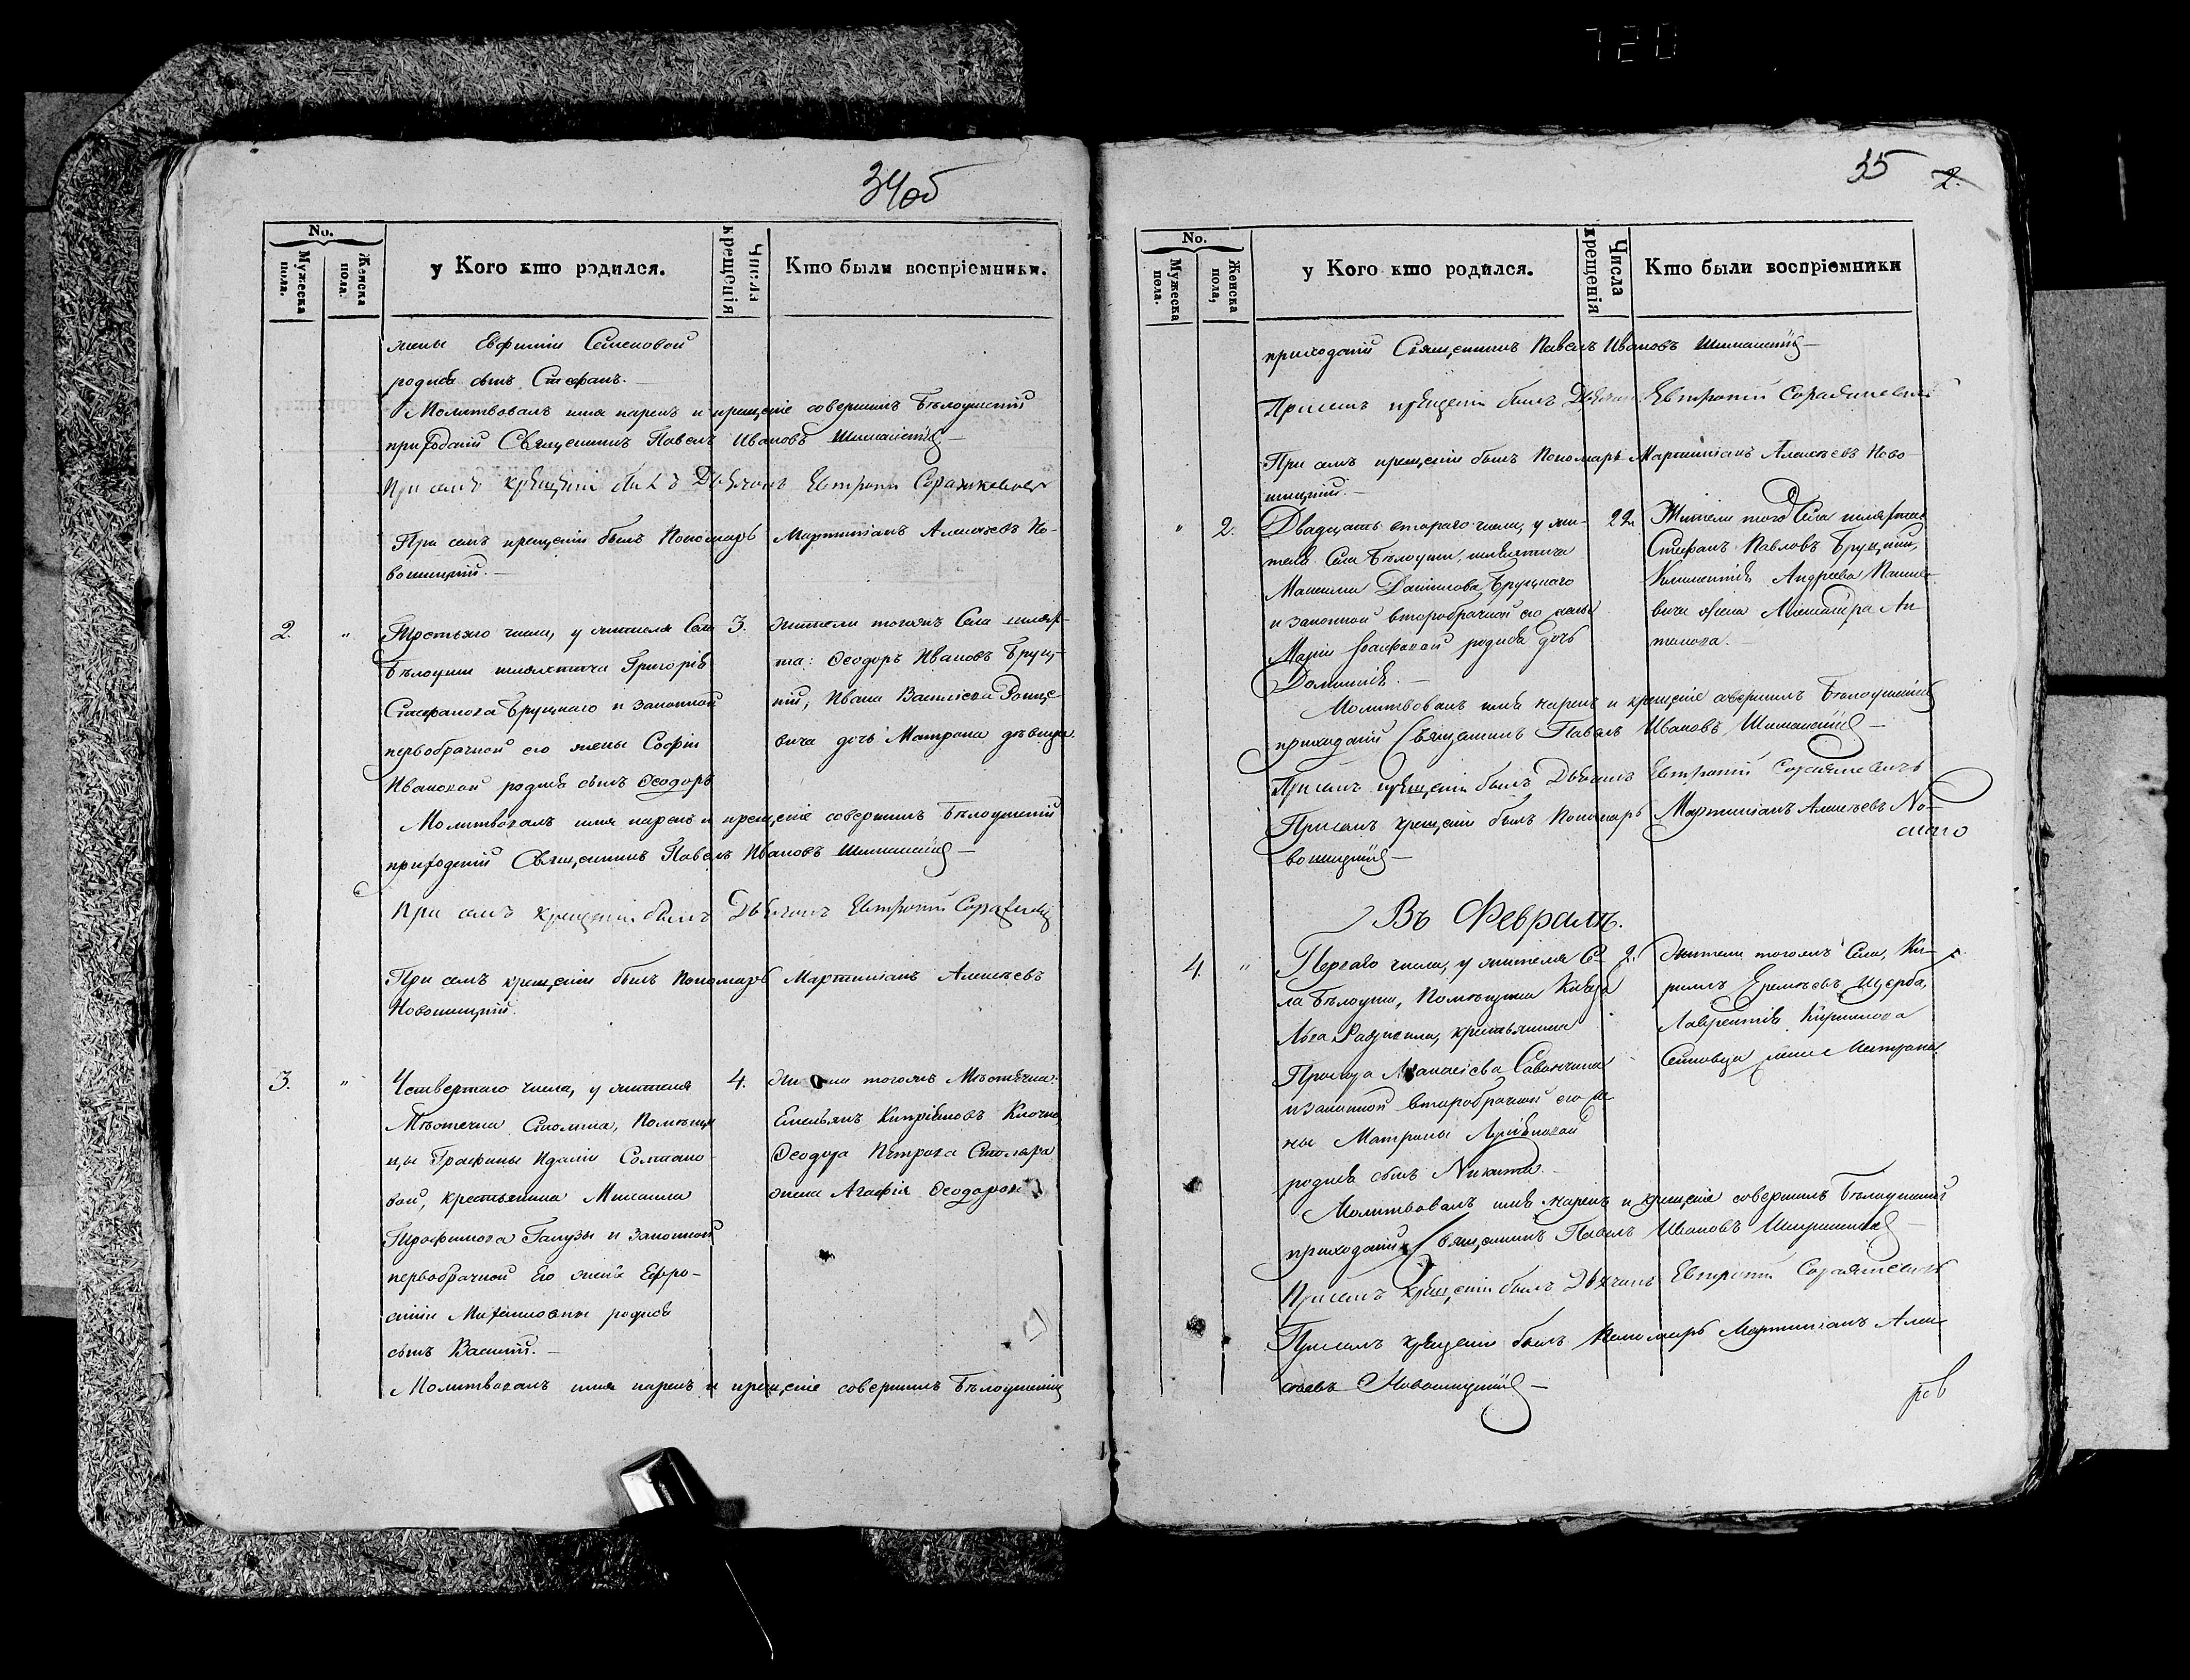 720
34об
No.
Мужеска пола.
Женска пола.
у Кого кто родился.
Числа крещенія
Кто были воспріемники.
жены Евфиміи Семеновой
родился сынъ Стефанъ.
Молитвовалъ имя нарекъ и крещеніе совершилъ Бѣлоушскій
приходскій Священникъ Павелъ Ивановъ
При семъ крещеніи былъ Дьячокъ Евтропій
При семъ крещеніи былъ Пономарь Мартиніанъ Алексѣевъ Но-
вошицкій.
2.
"
Третьяго числа, у жителя Села
Бѣлоуши шляхтича Григорія
Стефанова Бруцкаго и законной
первобрачной его жены Софіи
Ивановой родился сынъ Ѳеодоръ
3.
жители тогожъ Села шлях-
та: Ѳеодоръ Ивановъ Бруц-
кій, Ивана Васильева
вича дочь Матрона дѣвица.
Молитвовалъ имя нарекъ и крещеніе совершилъ Бѣлоушскій
приходскій Священникъ Павелъ Ивановъ
При семъ крещеніи былъ Дьячокъ Евтропій
При семъ крещеніи былъ Пономарь Мартиніанъ Алексѣевъ
Новошицкій.
3.
"
Четвертаго числа, у жителя
Мѣстечка Столина, Помѣщи-
цы Графини Идаліи Солтано-
вой, крестьянина Михаила
Трофимова Галузы и законной
первобрачной Его жены Ефро-
синіи Михайловны родился
сынъ Василій.
4.
тогожъ Мѣстечка:
Емельянъ Кипріяновъ
Ѳеодора Петрова Столяра
жена Агафія Ѳеодорова
Молитвовалъ имя нарекъ и крещеніе совершилъ Бѣлоушскій
35
2.
No.
Мужеска пола.
Женска пола,
у Кого кто родился.
Числа крещенія
Кто были воспріемники
приходскій Священникъ Павелъ Ивановъ
При семъ крещеніи былъ Дьячокъ Евтропій
При семъ крещеніи былъ Пономарь Мартиніанъ Алексѣевъ Ново-
шицкій.
"
2.
Двадцать втораго числа, у жи-
теля Села Бѣлоуши, шляхтича
Максима Даніилова Бруцкаго
и законной второбрачной его жены
Маріи родися дочь
Домникія.
22.
Жители того Села шляхта
Стефанъ Павловъ Бруцкій,
Климентія Андреева
вича жена Александра Ан-
тонова.
Молитвовалъ имя нарекъ и крещеніе совершилъ Бѣлоушскій
приходскій Священникъ Павелъ Ивановъ
При семъ крещеніи былъ Дьячокъ Евтропій
При семъ крещеніи былъ Пономарь Мартиніанъ Алексѣевъ Но-
вошицкій
Въ Февралѣ.
4.
"
Перваго числа, у жителя Се-
ла Бѣлоуши, Помѣщика Князя
Льва Радзивила, крестьянина
Прокопа Аѳанасіева
и законной второбрачной его же-
ны Матроны
родился сынъ Никита.
2.
Жители тогожъ Села, Ки-
риллъ Еремѣевъ Щерба,
Лаврентія Кириллова
жена Матрона.
Молитвовалъ имя нарекъ и крещеніе совершилъ Бѣлоушскій
приходскій Священникъ Павелъ Ивановъ
При семъ крещеніи былъ Дьячокъ Евтропій
При семъ крещеніи былъ Пономарь Мартиніанъ Алек-
сѣевъ Новошицкій